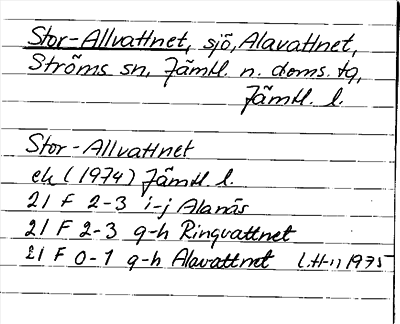 Stor-Allvattnet, sjö, Alavattnet,
Ströms sn, Jämtl. n. doms. tg,
Jämtl. l.
Stor-Allvattnet
ek (1974) Jämtl. l.
21 F 2-3 i-j Alanäs
21 F 2-3 g-h Ringvattnet
21 F 0-1 g-h Alavattnet 1975